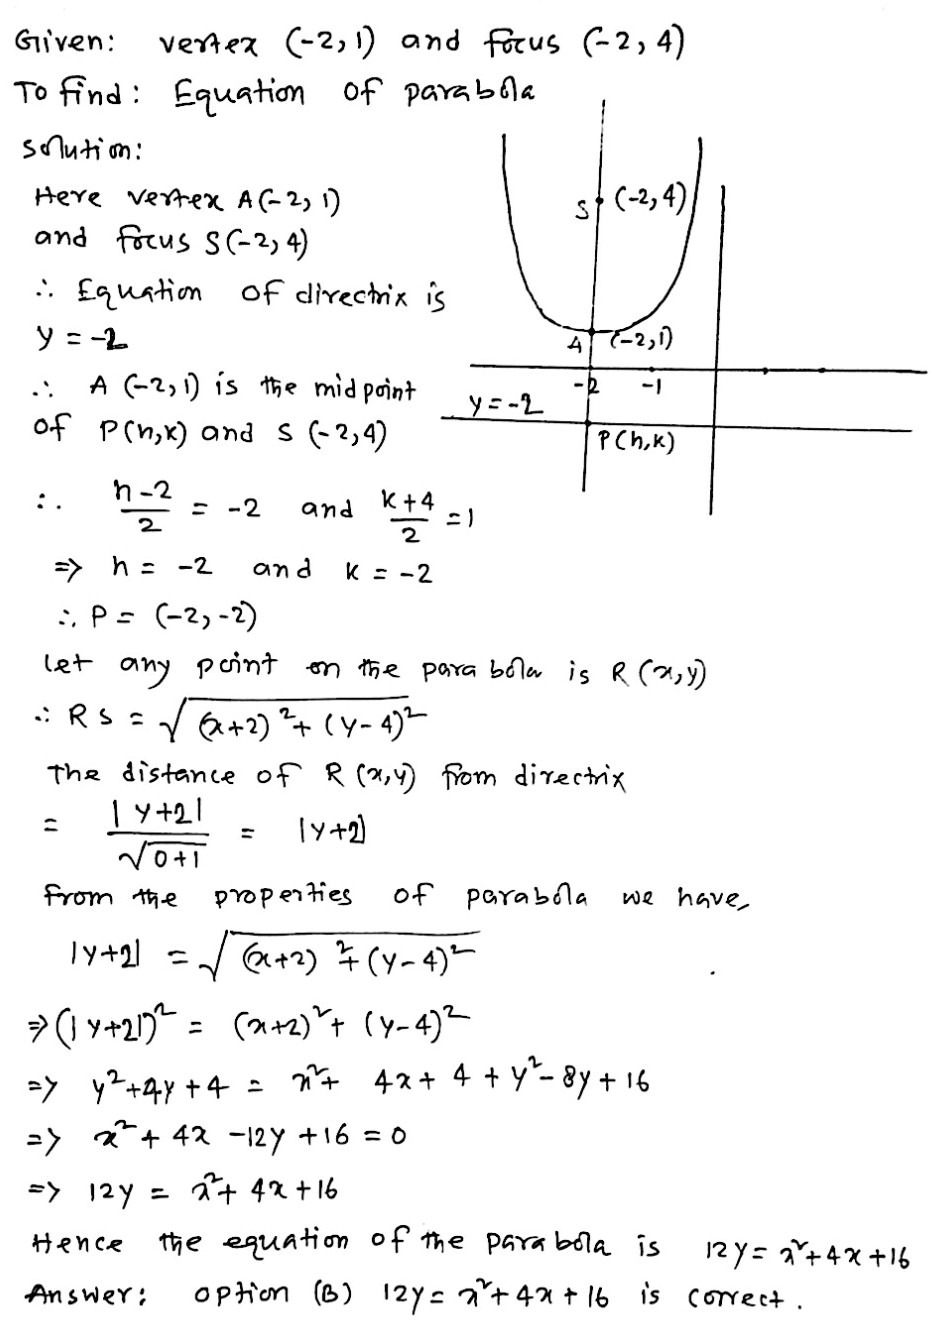 Given: vertex (-2,1) and focus (-2,4)
To find: Equation of parabola
Solution:
Here vertex A(-2,1)
and focus S(-2,4)
∴ Equation of directrix is
y = -2
∴ A (-2,1) is the midpoint
of P(h,k) and S (-2,4)
S (-2,4)
A (-2,1)
-2 -1
y=-2
P(h,k)
∴ (h-2)/2 = -2 and (k+4)/2 = 1
⇒ h = -2 and k = -2
∴ P = (-2,-2)
Let any point on the parabola is R(x,y)
∴ RS = √((x+2)²+(y-4)²)
The distance of R(x,y) from directrix
= |y+2|/√(0+1) = |y+2|
from the properties of parabola we have,
|y+2| = √((x+2)²+(y-4)²)
⇒ (|y+2|)² = (x+2)²+(y-4)²
⇒ y²+4y+4 = x²+4x+4+y²-8y+16
⇒ x²+4x-12y+16=0
⇒ 12y = x²+4x+16
Hence the equation of the parabola is 12y=x²+4x+16
Answer: option (B) 12y=x²+4x+16 is correct.